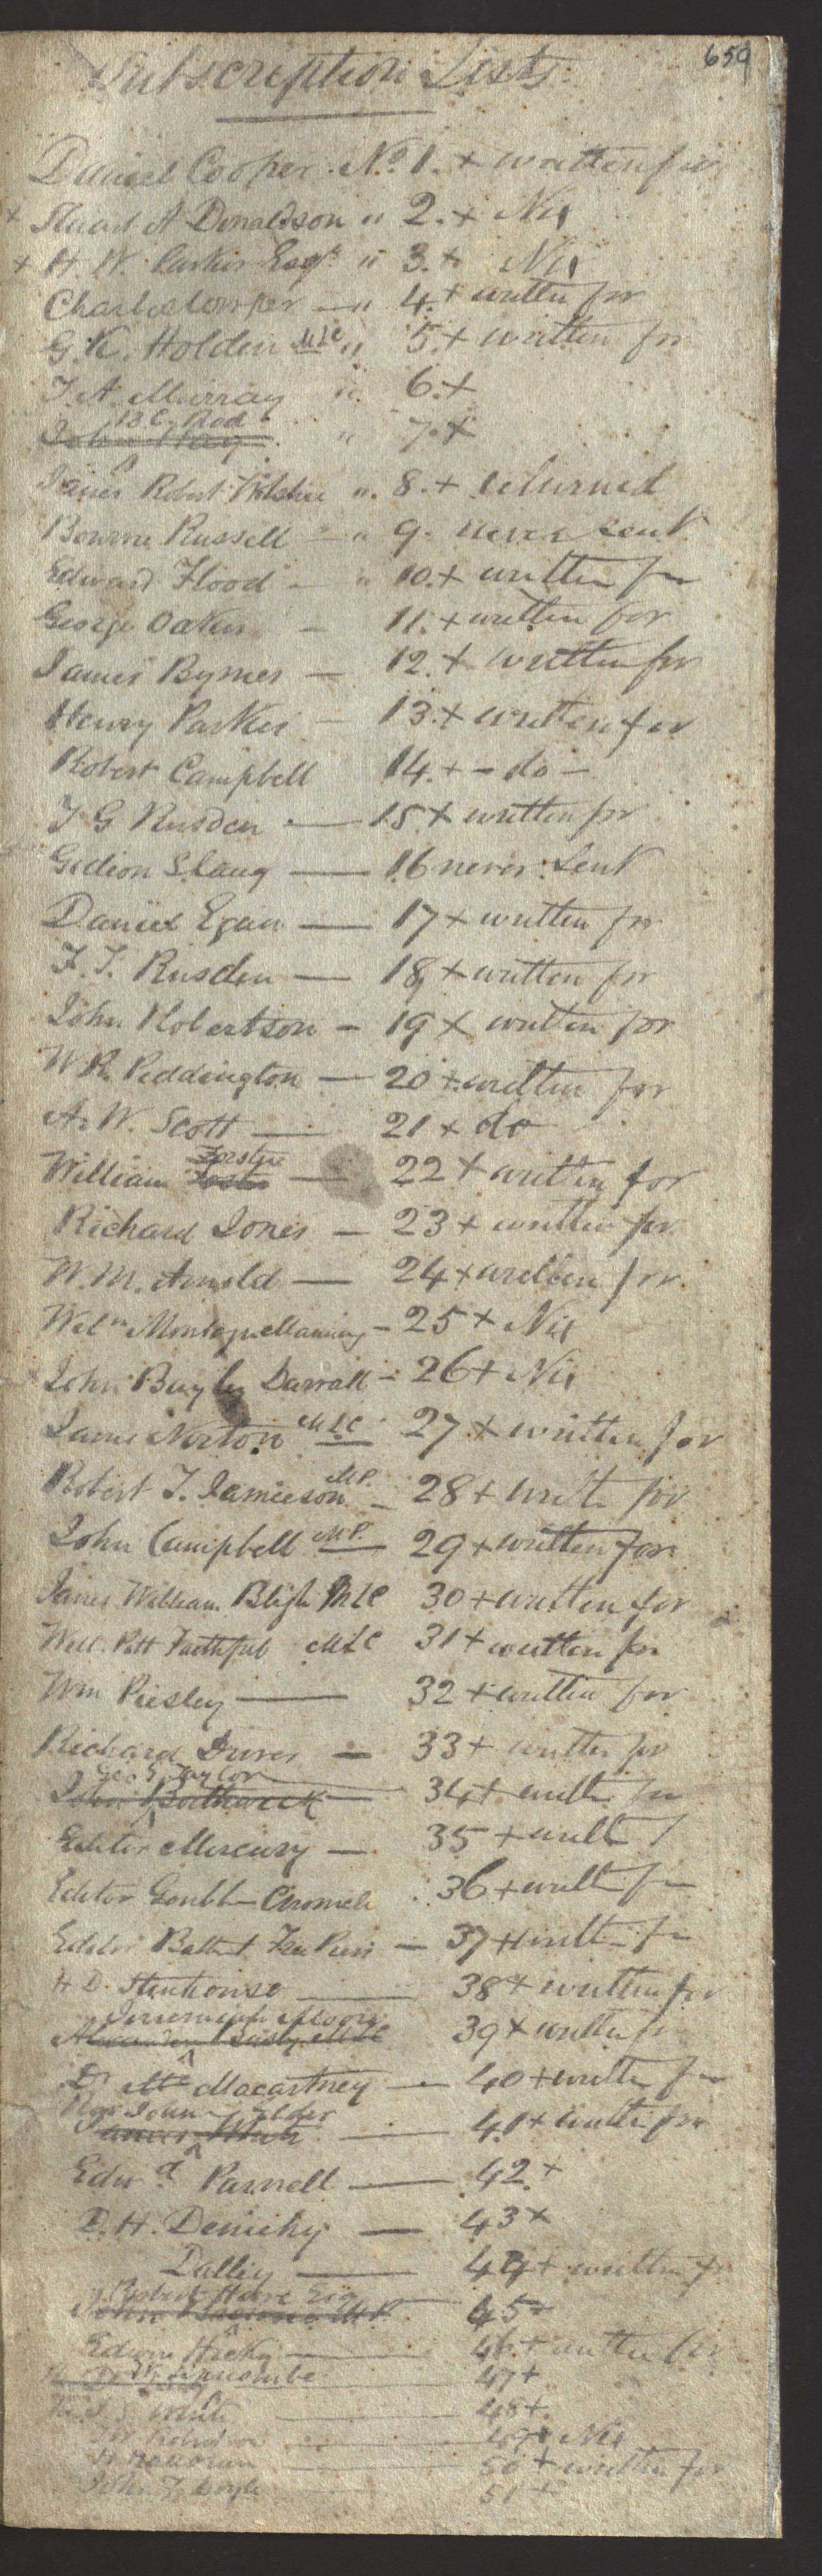 659
Subscription Lists
Daniel Cooper. No 1. + written for
+ Stuart A Donaldson " 2. + Nil
+ H. W. Parker Esqr " 3. + Nil
Charles Cowper — " 4. + written for
G. K. Holden MLC " 5. + written for
T. A. Murray " 6. +
B. C. Rod
John Hay " 7. +
James Robert Wilshire ". 8. + returned
Bourne Russell " 9. never sent
Edward Flood — " 10. + written for
George Oakes — 11. + written for
James Byrnes — 12. + written for
Henry Parkes — 13. + written for
Robert Campbell 14. + - do -
T G Rusden — 15 + written for
Gideon S. Lang — 16 never sent
Daniel Egan — 17 + written for
F. T. Rusden — 18 + written for
John Robertson - 19 + written for
W. R. Piddington — 20 + written for
A. W. Scott — 21 + do
Forster
William Foster — 22 + written for
Richard Jones — 23 + written for
W. M. Arnold — 24 + written for
Wilm Montague Manning - 25 + Nil
John Bayley Darvall - 26 + Nil
James Norton MLC 27 + written for
Robert T. Jamieson MP. - 28 + writt for
John Campbell MP. 29 + written for
James William Bligh MLC 30 + written for
Will. Pitt Faithful MLC 31 + written for
Wm Piesley — 32 + written for
Richard Driver — 33 + written for
Geo. G. Taylor
John Borthwick 34 + writt for
Editor Mercury — 35 + writt f
Editor Goulb- Chronicle 36 + writt f
Editor Batht. Free Press — 37 + writt f
H D. Stenhouse — 38 + written for
Jeremiah Moore
Alexander MLC 39 + written f
Dr Macartney — 40 + writte for
Rev John Elder
James — 41 + writte for
Edwd Parnell — 42. +
D. H. Deniehy — 43 +
Dalley — 44 + written for
Robert Hoare Esq
John MP. 45 +
Edwin Hickey — 46 + written for
47 +
White — 48 +
Robertson — 49 + Nil
H Halloran — 50 + written for
John F Doyle — 51 +